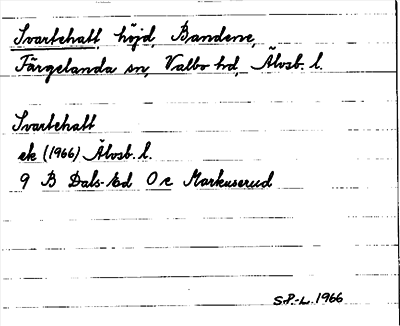 Svartehatt, höjd, Bandene,
Färgelanda sn, Valbo hd, Älvsb. l.
Svartehatt
ek (1966) Älvsb. l.
9 B Dals-Ed O c Markuserud
S.P.-L. 1966